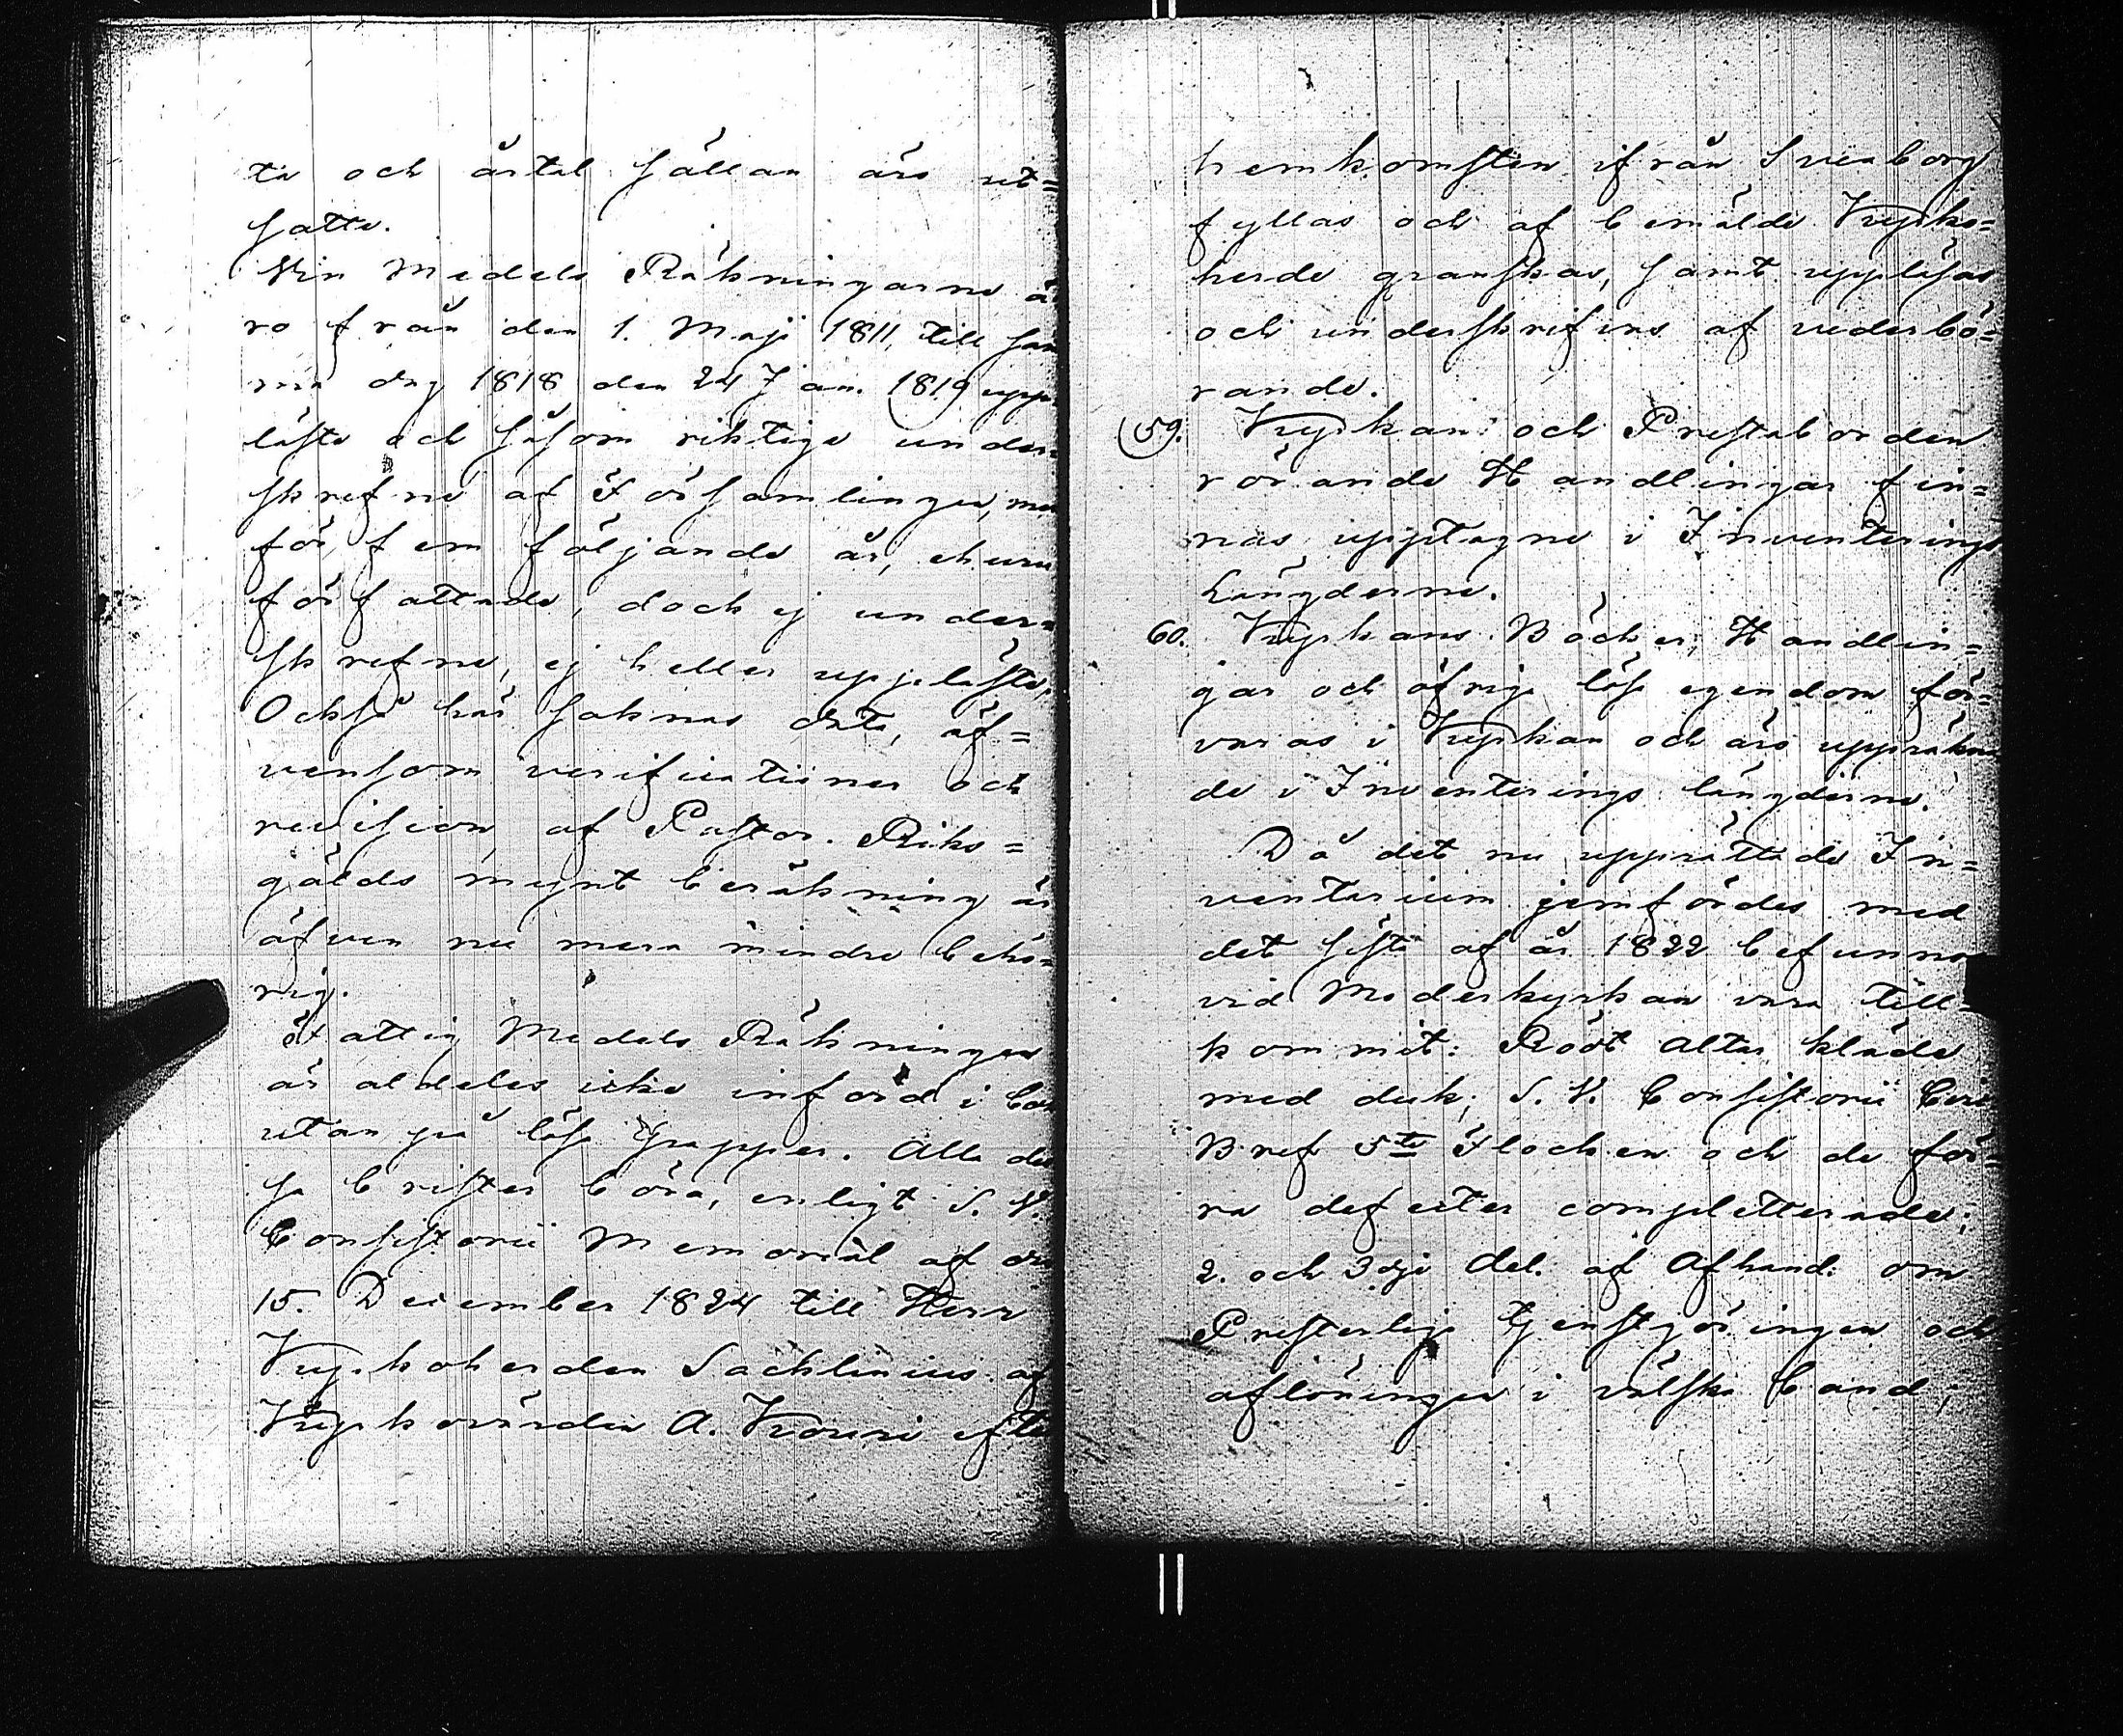 ta och årtal sällan äro ut=
satte.
Vin Medels Räkningarne ä
ro från den 1. Maji 1811 till sam
ma dag 1818 den 24 Jan. 1819 upp
läste och såsom riktige under=
skrefne af Församlingen, men
för fem följande år, ehuru
författade, doch ej under=
skrefne, ej heller uppläste,
Också här saknas data, äf=
vensom verificationer och
revision af Pastor. Riks=
gälds mynt beräkning är
äfven nu mera mindre behö=
rig.
Fattig Medels Räkningen
är aldeles icke införd i bok
utan på löse papper. Alla des
sa brister böra, enligt S. V.
Consistorii Memorial af den
15. December 1824 till Herr
Kyrkoherden Sacklinius af
Kyrkovärden A. Krouvi efter
hemkomsten ifrån Sveaborg
fyllas och af bemälde Kyrko=
herde granskas, samt uppläsas
och underskrifvas af vederbö=
rande.
59. Kyrkan och Prestaborden
rörande Handlingar fin=
nas upptagne i Inventerings
Längderne.
60. Kyrkans Böcker, Handlin=
gar och öfrige löse egendom för=
varas i Kyrkan och äro uppräkna
de i Inventerings längderne.
Då det nu upprättade In=
ventarium jemfördes med
det siste af år 1822 befunnos
vid Moderkyrkan vara till=
kommit: Rödt Altar kläde
med duk; S. V. Consistorii Circ
Bref 5te Flocken och de för=
ra defecter completterade;
2. och 3dje del. af Afhand: om
Presterlige Tjenstgöringen och
aflöningen i välska band;